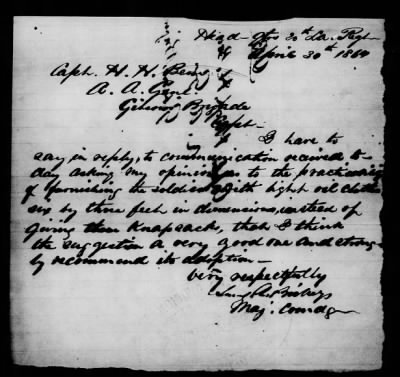 Head-Qrs 30th La. Regt
April 30th 1864
Capt. H. H.
A. A. Genl
Brigade
Capt -
I have to
say in reply, to communication received to-
day asking my opinion as to the practicability
of furnishing the soldiers with light oil cloths
six by three feet in dimensions, instead of
giving them Knapsacks, that I think
the suggestion a very good one and strong-
ly recommend its adoption -
very respectfully
Maj. Comdg